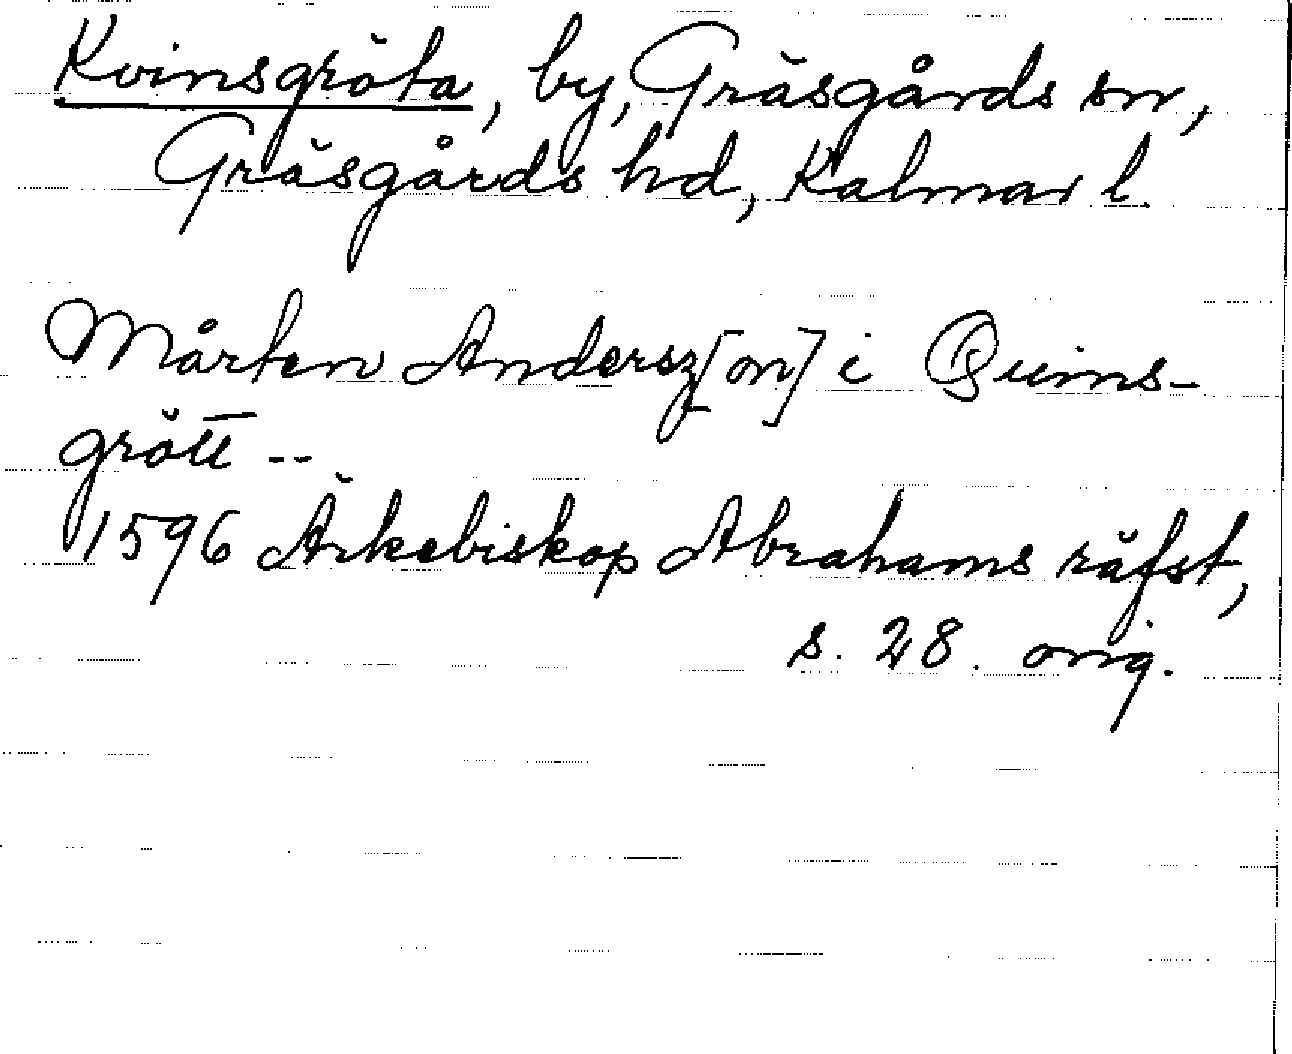 Kvinsgröta, by, Gräsgårds sn,
Gräsgårds hd, Kalmar l.
Mårten Andersz[on] i Quins-
grött --
1596 Ärkebiskop Abrahams räfst,
s. 28. orig.